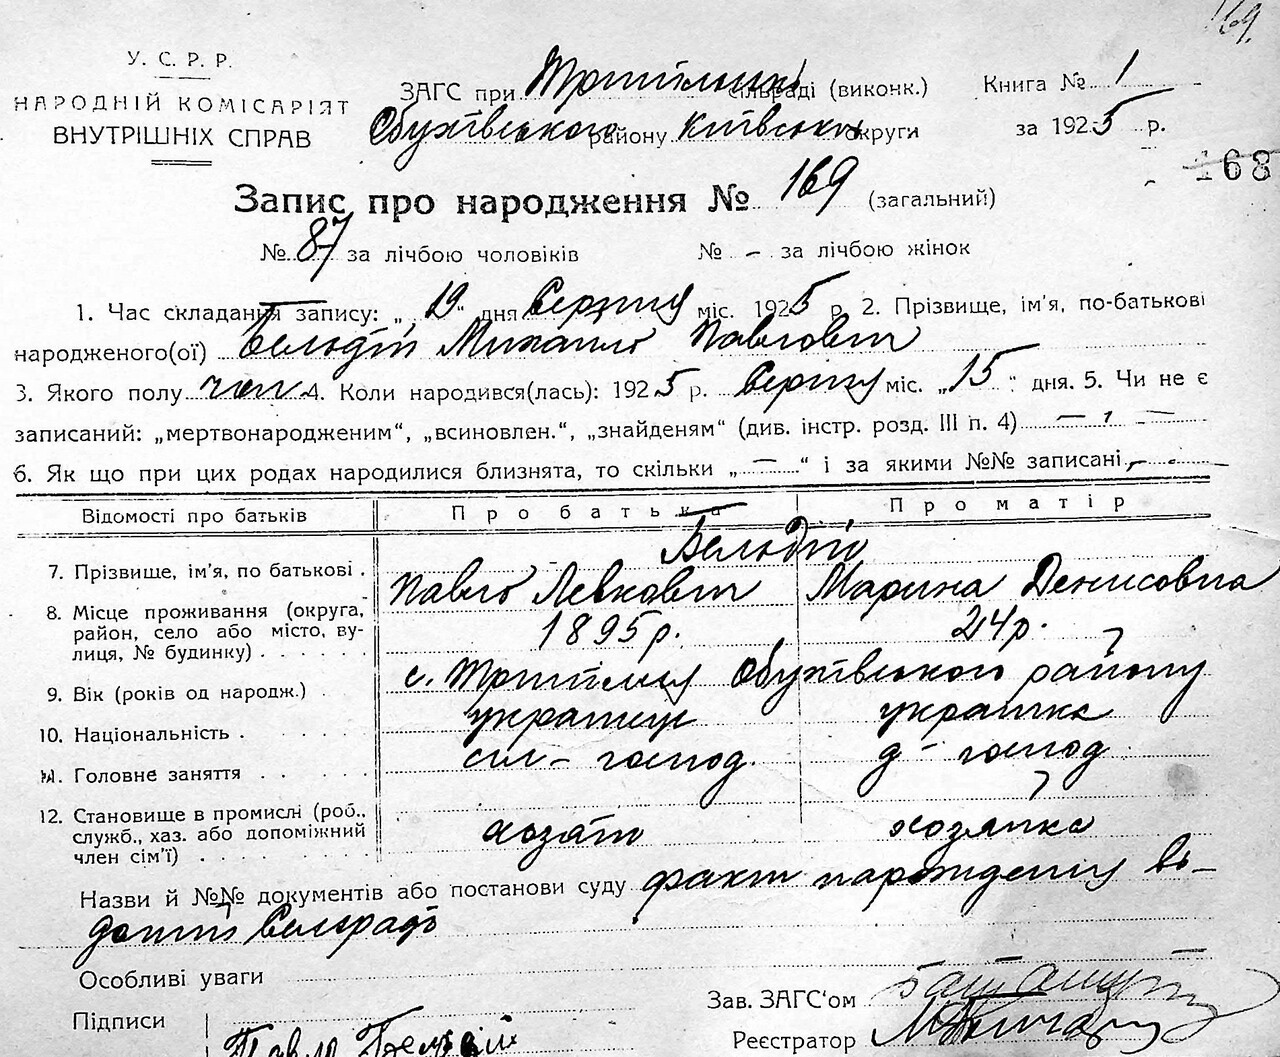 169.
У. С. Р. Р.
НАРОДНІЙ КОМІСАРІЯТ
ВНУТРІШНІХ СПРАВ
ЗАГС при Трипільскі сільраді (виконк.)
Обухівського району Київськи округи
Книга № 1
за 1925 р.
168
Запис про народження № 169 (загальний)
№ 87 за лічбою чоловіків № - за лічбою жінок
1. Час складання запису: „ 19 " дня Серпня міс. 1925 р. 2. Прізвище, ім'я, по-батькові
народженого(ої) Бельдій Михайло Павлович
3. Якого полу чол 4. Коли народився(лась): 1925 р. Серпня міс. „ 15 " дня. 5. Чи не є
записаний: „мертвонародженим", „всиновлен.", „знайденям" (див. інстр. розд. III п. 4) —
6. Як що при цих родах народилися близнята, то скільки „ — " і за якими №№ записані -
Відомості про батьків Про батька Про матір
Бельдій
7. Прізвище, ім'я, по батькові . Павло Левкович Марина Денисовна
8. Місце проживання (округа,
район, село або місто, ву-
лиця, № будинку) . . . . . 1895р. 24р.
9. Вік (років од народж.) . с. Трипілля Обухівського району
10. Національність . українець українка
11. Головне заняття сіл- господ. д- господ
12. Становище в промислі (роб.,
служб., хаз. або допоміжний
член сім'ї) хозяїн хозяйка
Назви й №№ документів або постанови суду факт нарождення ві-
домий Сельраді
Особливі уваги
Підписи Павло Бельдій
Зав. ЗАГС'ом
Реєстратор